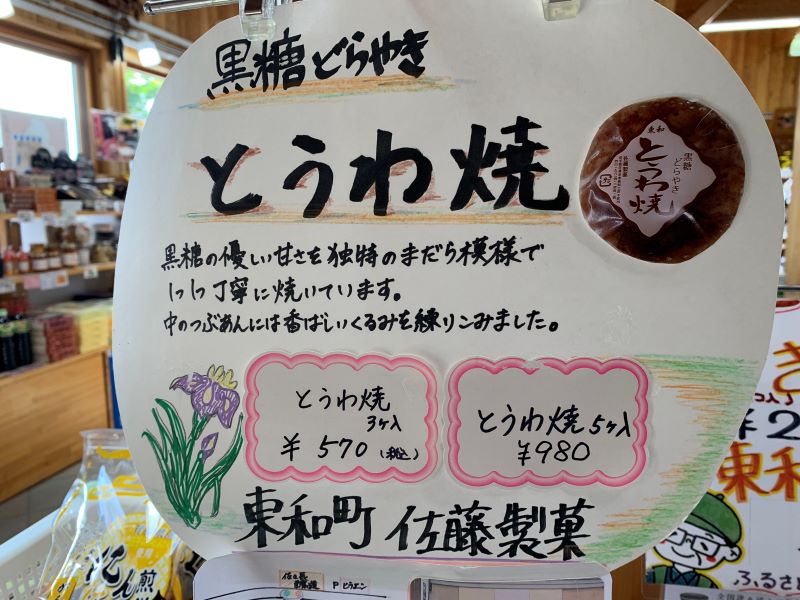 黒糖どらやき
とうわ焼
東和
黒糖
どらやき
とうわ焼
黒糖の優しい甘さを独特のまだら模様で
1つ1つ丁寧に焼いています。
中のつぶあんには香ばしいくるみを練りこみました。
とうわ焼
3ヶ入
¥570(税込)
とうわ焼5ヶ入
¥980
東和町 佐藤製菓
¥2
東和
ふるさ